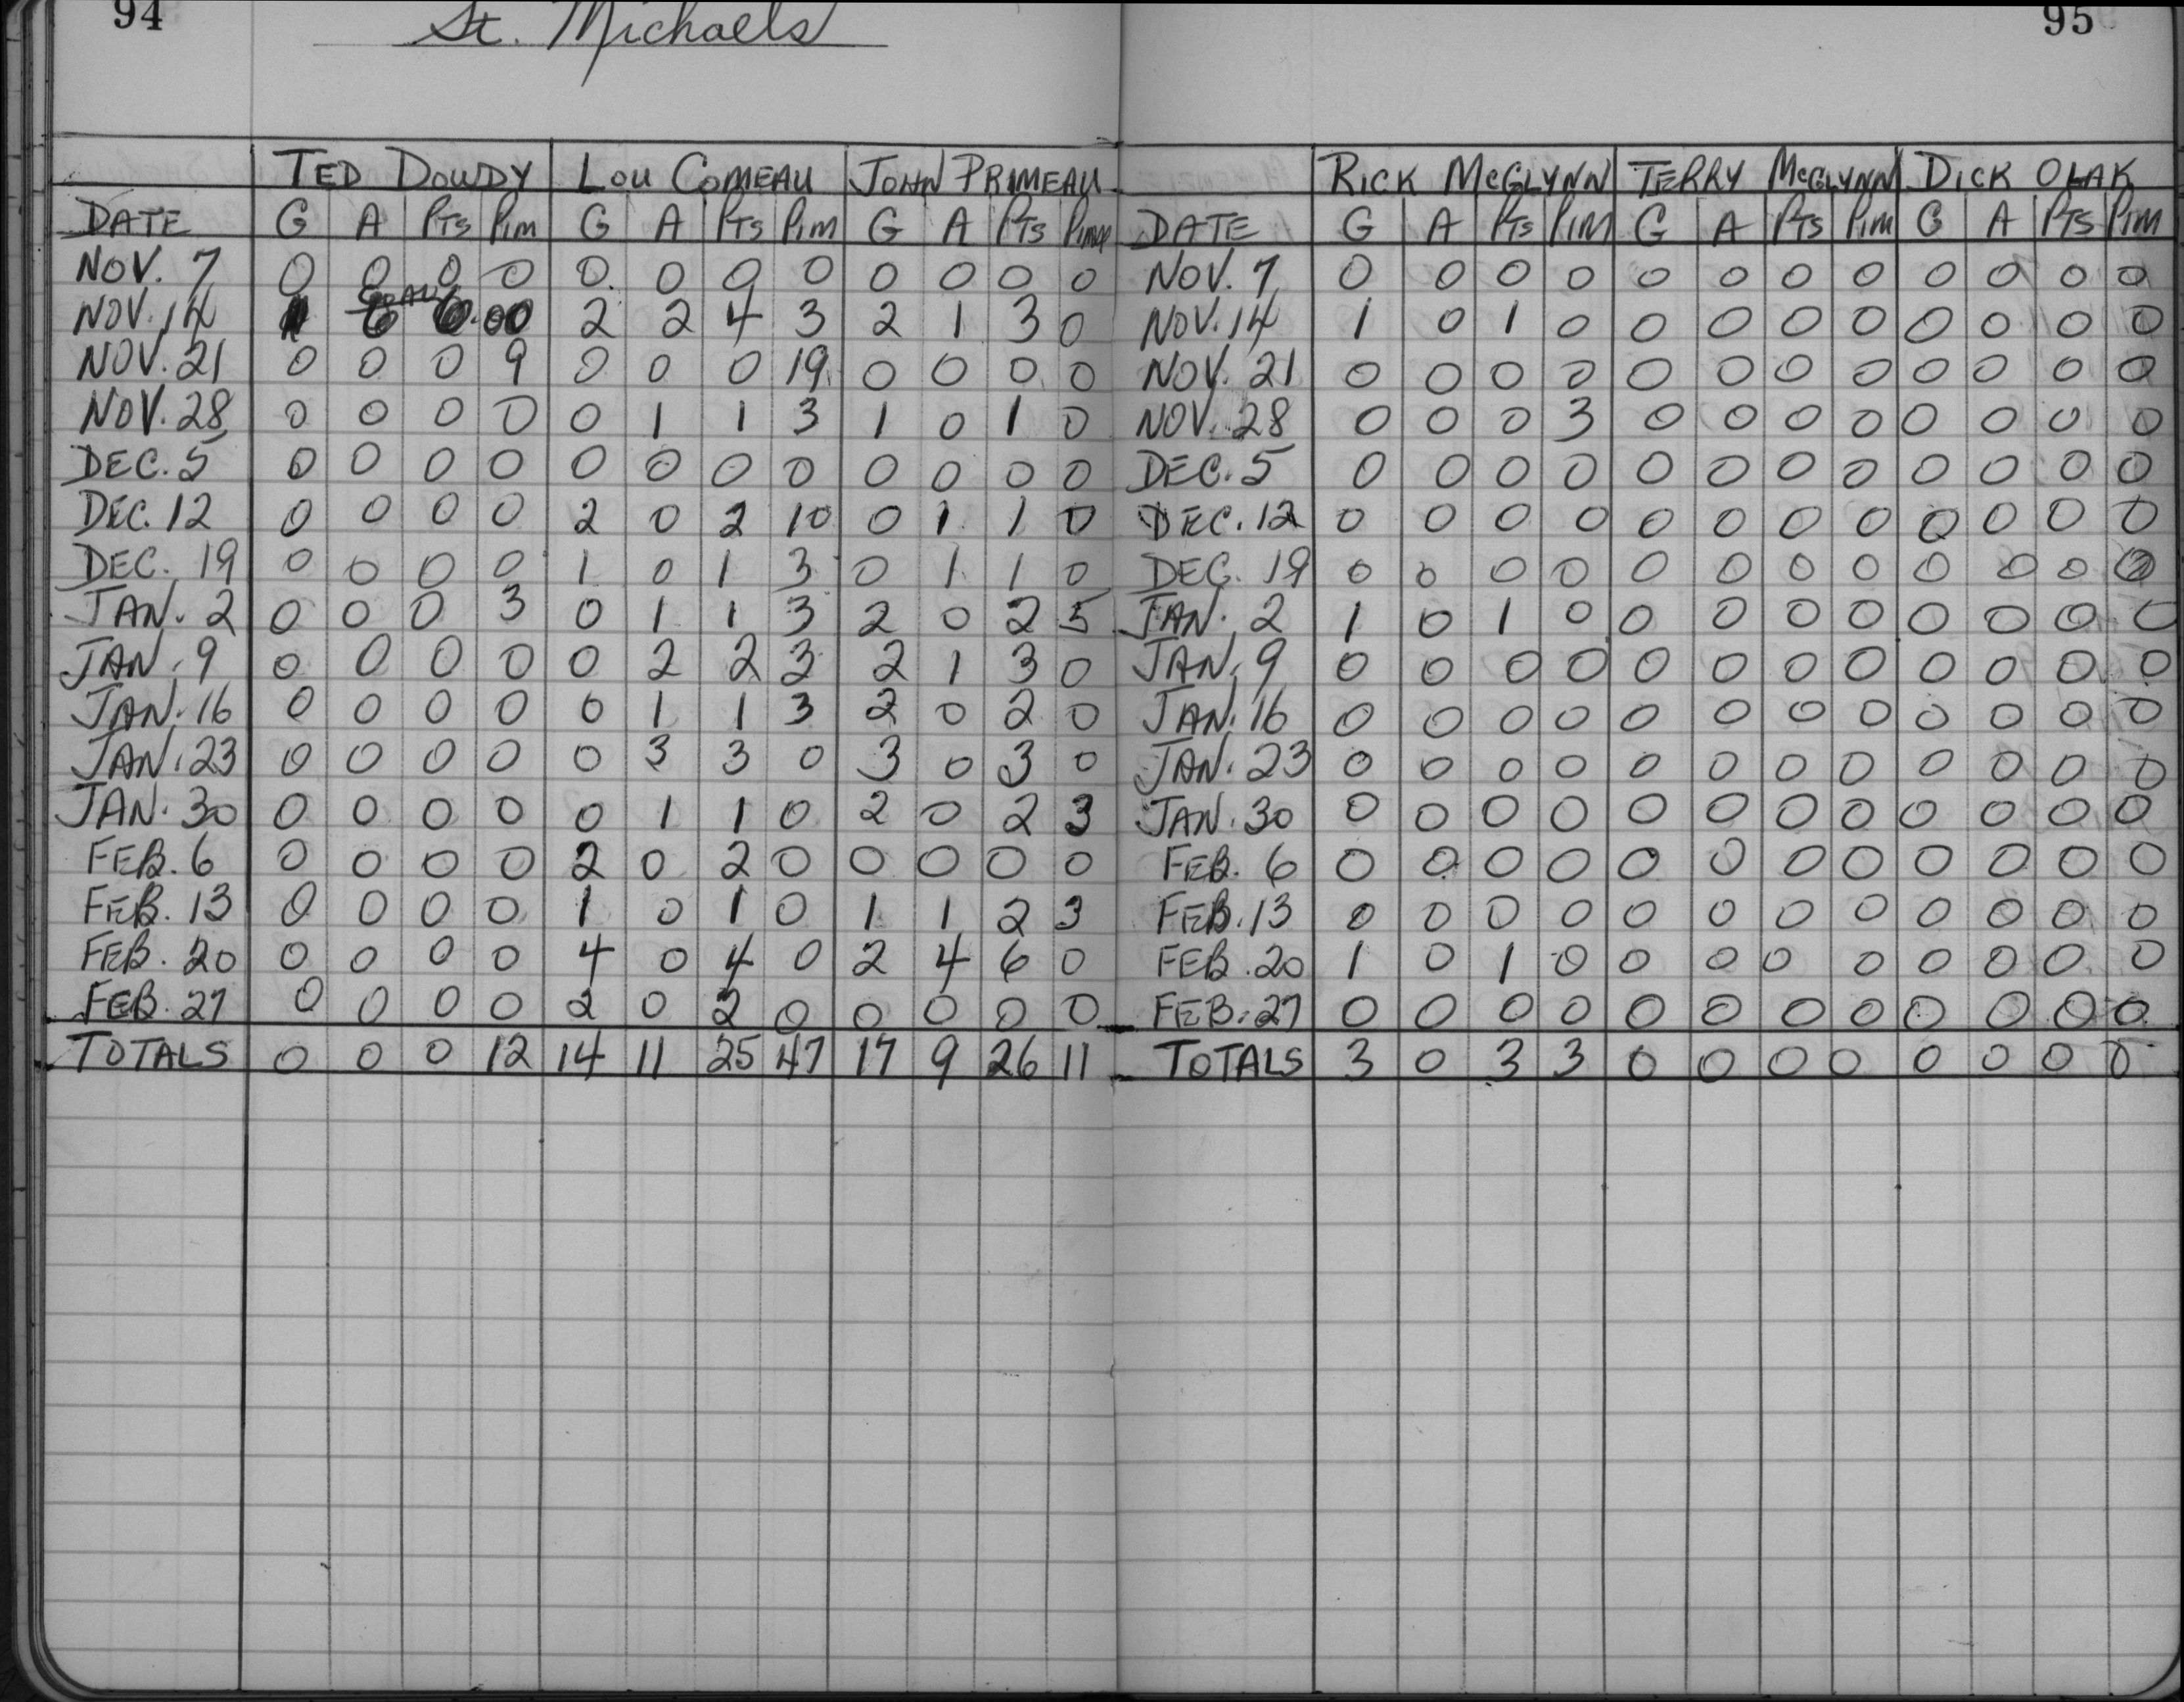 94
St. Michaels
TED DOWDY LOU COMEAU JOHN PRIMEAU
DATE G A PTS PIM G A PTS PIM G A PTS PIM
NOV. 7 0 0 0 0 0 0 0 0 0 0 0 0
NOV. 14 2 2 4 3 2 1 3 0
NOV. 21 0 0 0 9 0 0 0 19 0 0 0 0
NOV. 28 0 0 0 0 0 1 1 3 1 0 1 0
DEC. 5 0 0 0 0 0 0 0 0 0 0 0 0
DEC. 12 0 0 0 0 2 0 2 10 0 1 1 0
DEC. 19 0 0 0 0 1 0 1 3 0 1 1 0
JAN. 2 0 0 0 3 0 1 1 3 2 0 2 5
JAN. 9 0 0 0 0 0 2 2 3 2 1 3 0
JAN. 16 0 0 0 0 0 1 1 3 2 0 2 0
JAN. 23 0 0 0 0 0 3 3 0 3 0 3 0
JAN. 30 0 0 0 0 0 1 1 0 2 0 2 3
FEB. 6 0 0 0 0 2 0 2 0 0 0 0 0
FEB. 13 0 0 0 0 1 0 1 0 1 1 2 3
FEB. 20 0 0 0 0 4 0 4 0 2 4 6 0
FEB. 27 0 0 0 0 2 0 2 0 0 0 0 0
TOTALS 0 0 0 12 14 11 25 47 17 9 26 11
95
RICK McGLYNN TERRY McGLYNN DICK OLAK
DATE G A PTS PIM G A PTS PIM G A PTS PIM
NOV. 7 0 0 0 0 0 0 0 0 0 0 0 0
NOV. 14 1 0 1 0 0 0 0 0 0 0 0 0
NOV. 21 0 0 0 0 0 0 0 0 0 0 0 0
NOV. 28 0 0 0 3 0 0 0 0 0 0 0 0
DEC. 5 0 0 0 0 0 0 0 0 0 0 0 0
DEC. 12 0 0 0 0 0 0 0 0 0 0 0 0
DEC. 19 0 0 0 0 0 0 0 0 0 0 0 0
JAN. 2 1 0 1 0 0 0 0 0 0 0 0 0
JAN. 9 0 0 0 0 0 0 0 0 0 0 0 0
JAN. 16 0 0 0 0 0 0 0 0 0 0 0 0
JAN. 23 0 0 0 0 0 0 0 0 0 0 0 0
JAN. 30 0 0 0 0 0 0 0 0 0 0 0 0
FEB. 6 0 0 0 0 0 0 0 0 0 0 0 0
FEB. 13 0 0 0 0 0 0 0 0 0 0 0 0
FEB. 20 1 0 1 0 0 0 0 0 0 0 0 0
FEB. 27 0 0 0 0 0 0 0 0 0 0 0 0
TOTALS 3 0 3 3 0 0 0 0 0 0 0 0